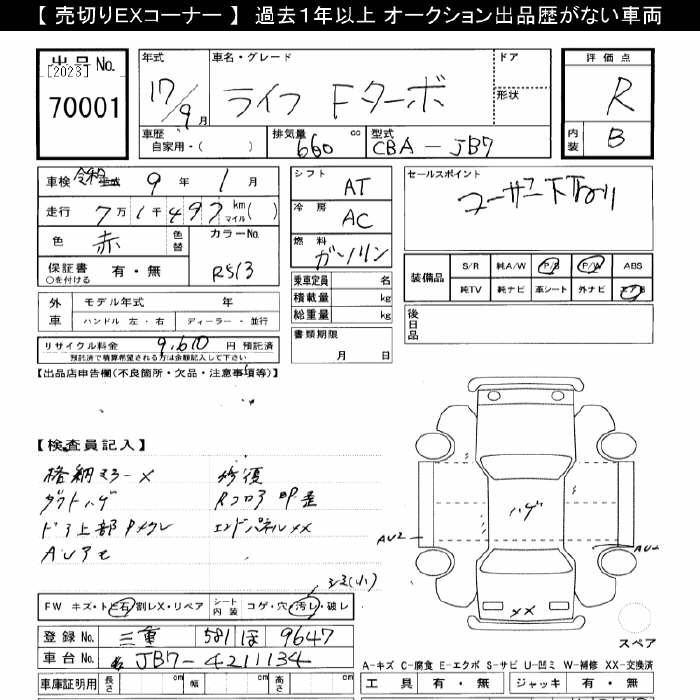 【 売切りEXコーナー 】 過去1年以上 オークション出品歴がない車両
出品No.
[2023]
70001
年式
17/9月
車名・グレード
ライフ Fターボ
ドア
形状
評価点
R
内装
B
車歴
自家用・( )
排気量
660 cc
型式
CBA-JB7
車検 令和 9年 1月
走行 7万1千497 km マイル( )
色 赤
色替
カラーNo.
R513
保証書 有・無
○を付ける
シフト
AT
冷房
AC
燃料
ガソリン
乗車定員 名
積載量 kg
総重量 kg
書類期限
月 日
セールスポイント
ユーザー下取り
装備品
S/R 純A/W P/S P/W ABS
純TV 純ナビ 革シート 外ナビ エアB
後日品
外車
モデル年式 年
ハンドル 左・右
ディーラー・並行
リサイクル料金 9,610 円 預託済
預託済で積算希望される方は金額記入して下さい
【出品店申告欄(不良箇所・欠品・注意事項等)】
【検査員記入】
格納ミラーX
ダクトハゲ
ドア上部Pメクレ
AUアセ
修復
Rコロア
エンドパネルXX
シミ(小)
FW キズ・ト石割レX・リペア
シート内装
コゲ・穴・汚レ・破レ
登録No. 三重 581 ほ 9647
車台No. JB7-4211134
車庫証明用 長さ cm 幅 cm 高さ cm
ハゲ
AU2
AU
XX
スペア
A-キズ C-腐食 E-エクボ S-サビ U-凹ミ W-補修 XX-交換済
工具 有・無 ジャッキ 有・無